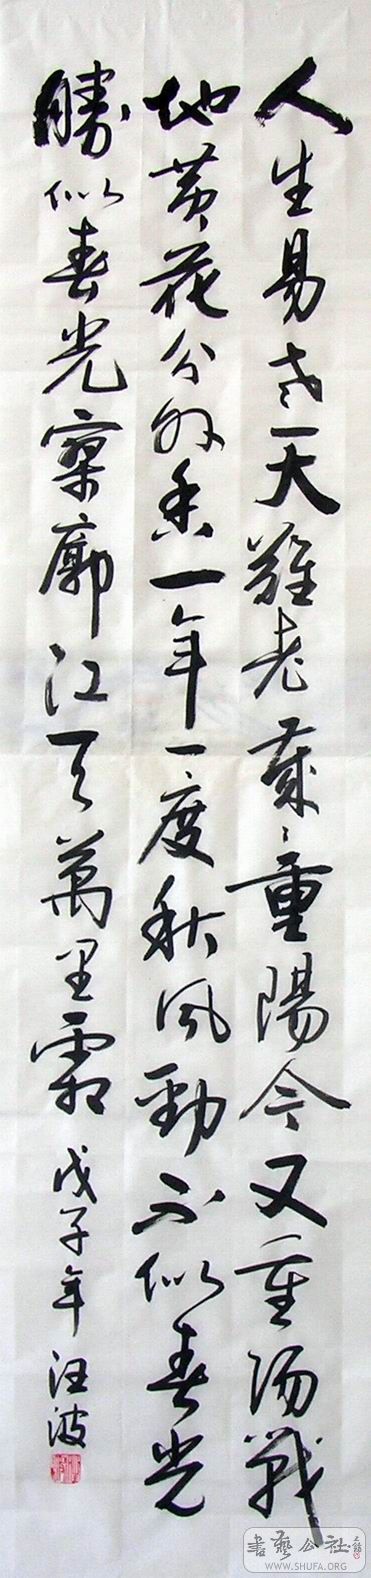 人生易老天難老歲々重陽今又重陽戰
地黄花分外香一年一度秋風勁不似春光
勝似春光寥廓江天萬里霜戊子年汪波
書藝公社
WWW.SHUFA.ORG